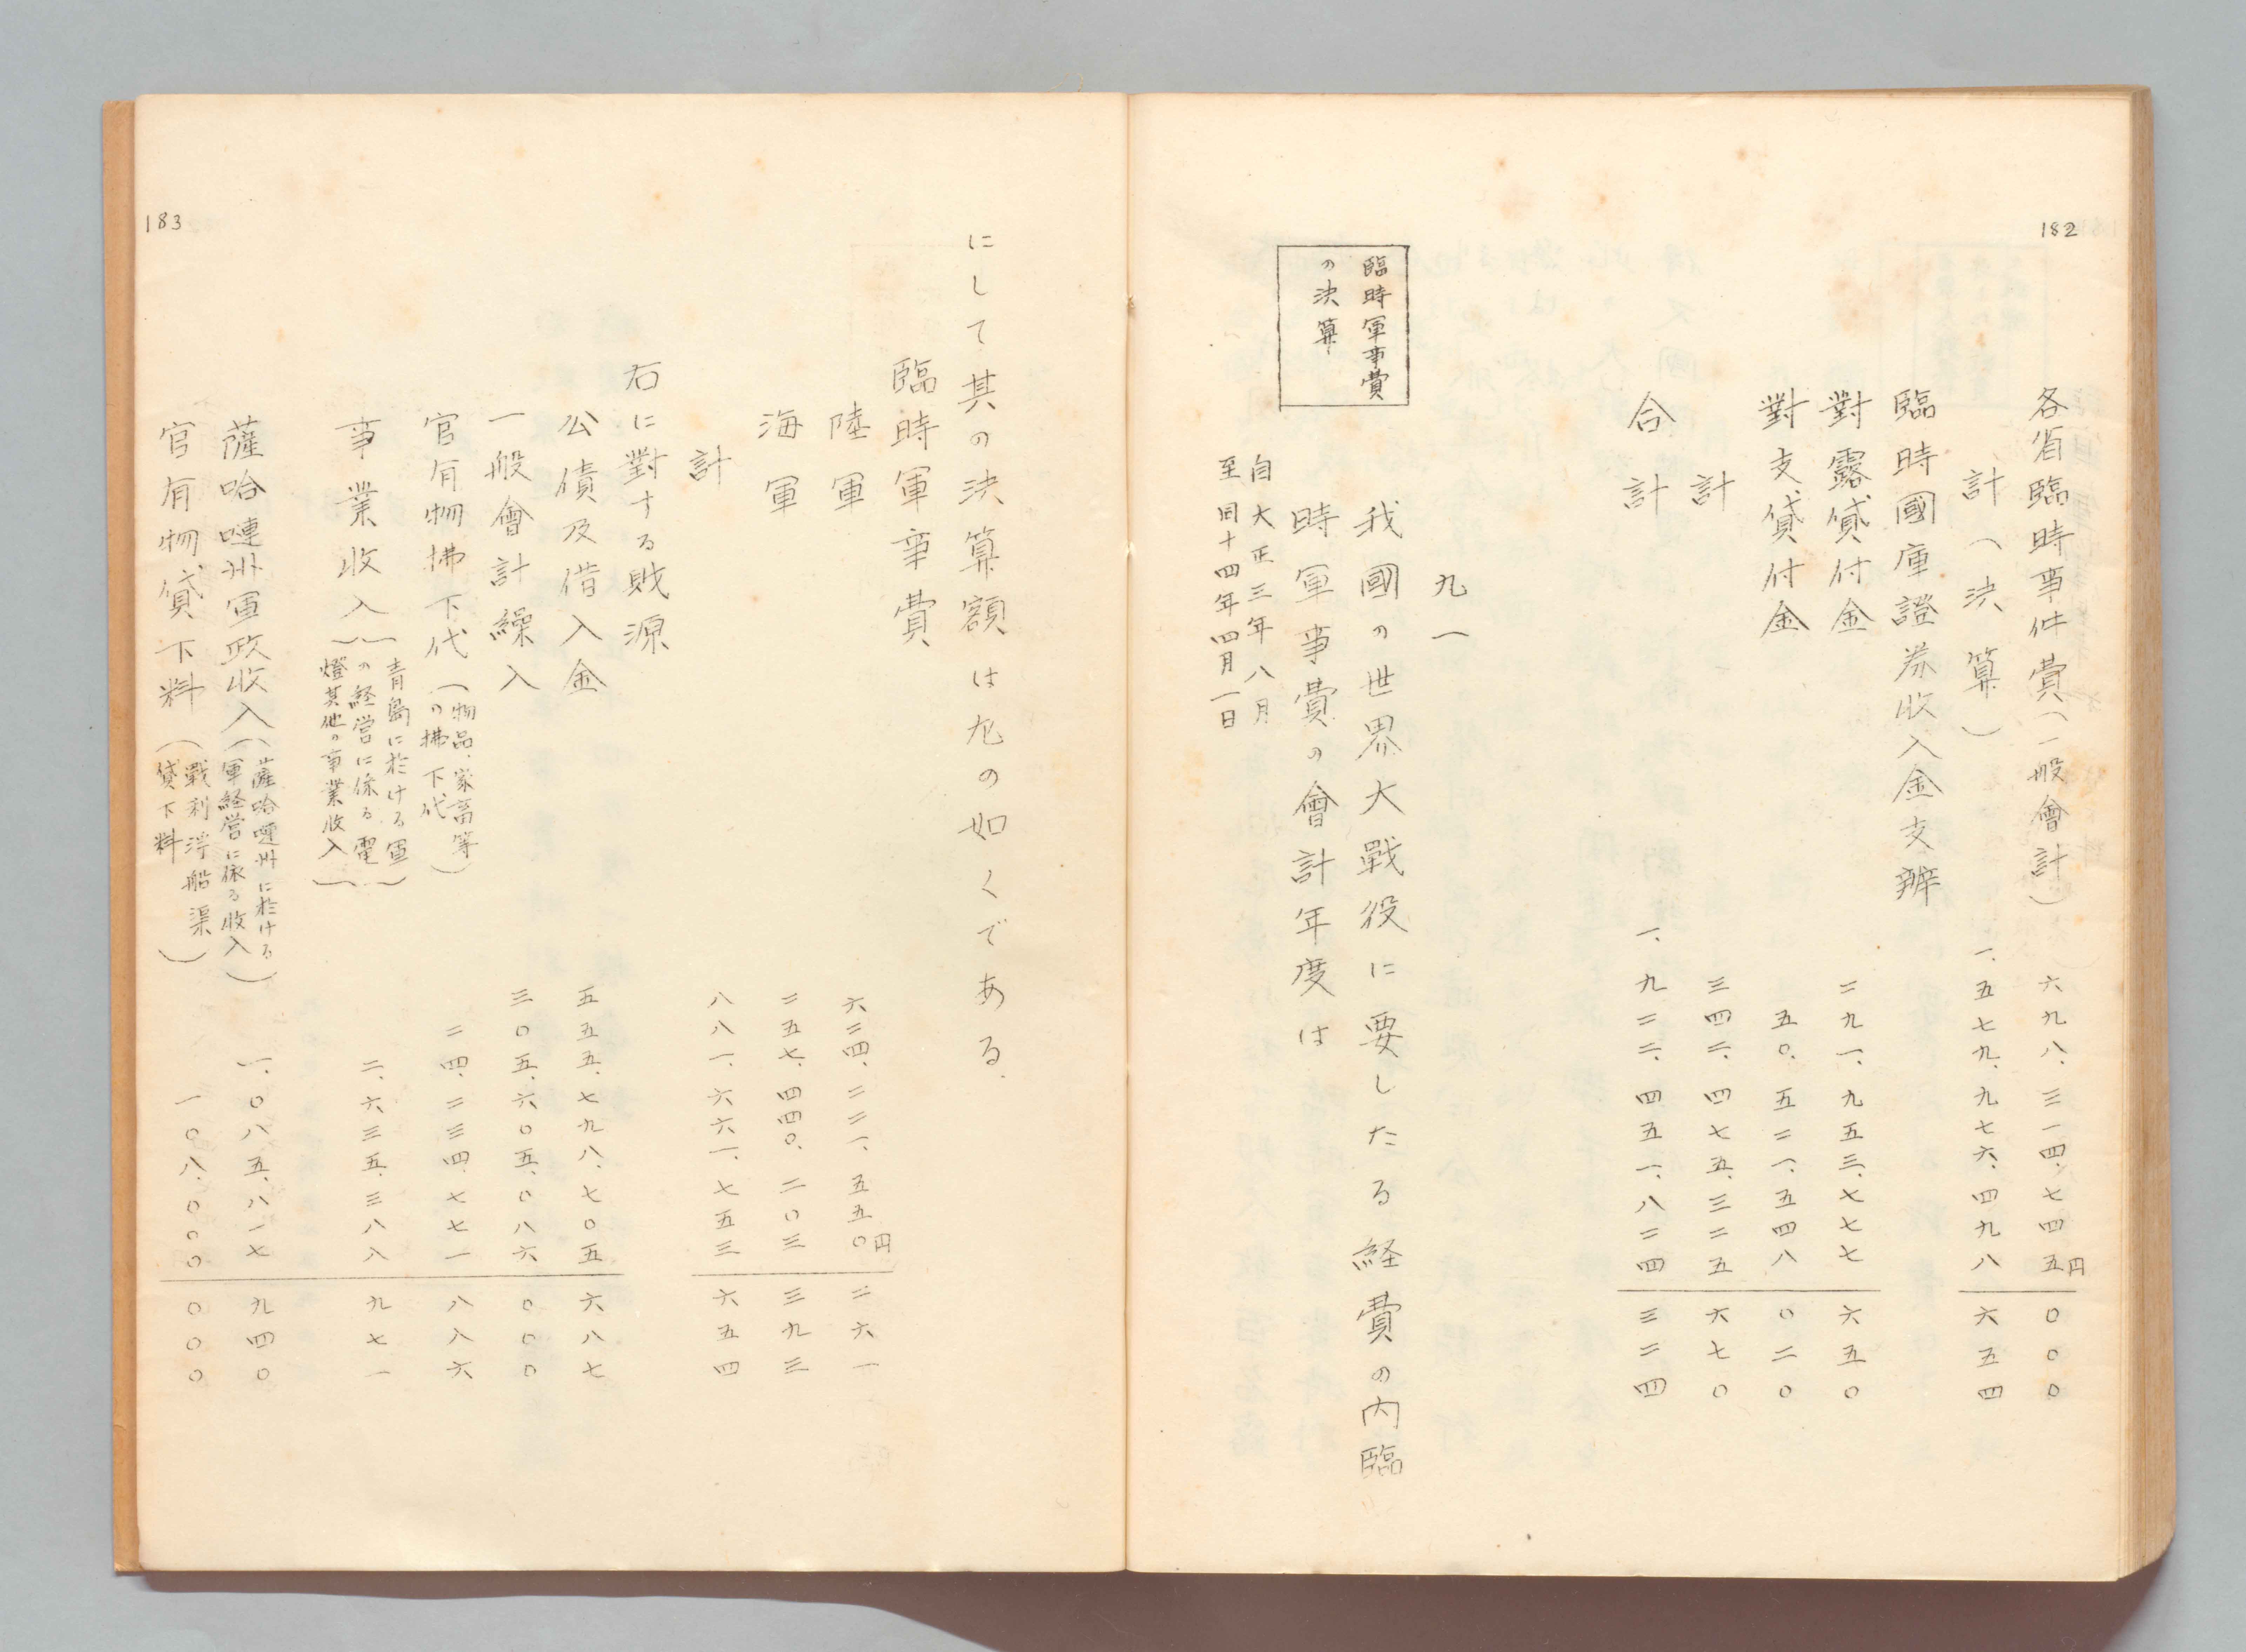 182
各省臨時事件費(一般會計) 六九八、三一四、七四五円 〇〇〇
計(決算) 一、五七九、九七六、四九八 六五四
臨時國庫證券收入金支辨
對露貸付金 二九一、九五三、七七七 六五〇
對支貸付金 五〇、五二一、五四八 〇二〇
計 三四二、四七五、三二五 六七〇
合計 一、九二二、四五一、八二四 三二四
九一
臨時軍事費
の決算
我國の世界大戰役に要したる経費の内臨
時軍事費の會計年度は
自大正三年八月
至同十四年四月一日
183
にして其の決算額は左の如くである.
臨時軍事費
陸軍 六二四、二二一、五五〇円 二六一
海軍 二五七、四四〇、二〇三 三九三
計 八八一、六六一、七五三 六五四
右に對する敗源
公債及借入金 五五五、七九八、七〇五 六八七
一般會計繰入 三〇五、六〇五、〇八六 〇〇〇
官有物拂下代(物品、家畜等
の拂下代) 二四、二三四、七七一 八八六
事業收入(青島に於ける軍
の経営に係る電
燈其他の事業收入) 二、六三五、三八八 九七一
薩哈嗹州軍政收入(薩哈嗹州に於ける
軍経営に係る收入) 一、〇八五、八一七 九四〇
官有物貸下料(戰利浮船渠
貸下料) 一〇八、〇〇〇 〇〇〇